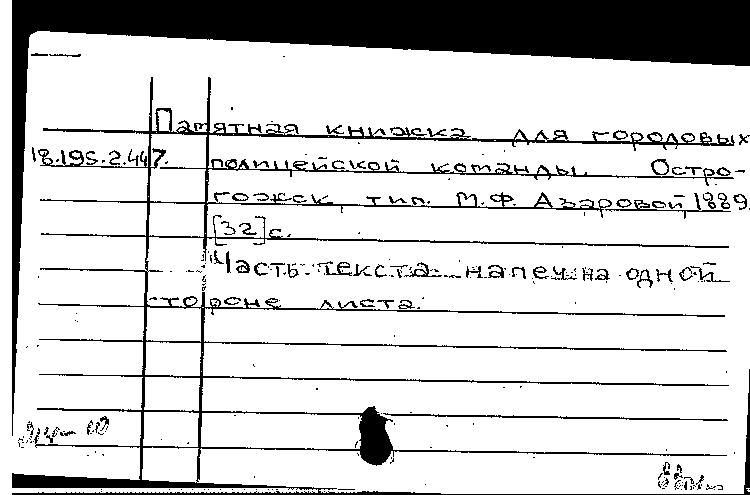 Памятная книжка для городовых
18.195.2.447. полицейской команды. Остро-
гожск, тип. М.Ф. Азаровой, 1889.
[32] с.
Часть текста напеч. на одной
стороне листа.